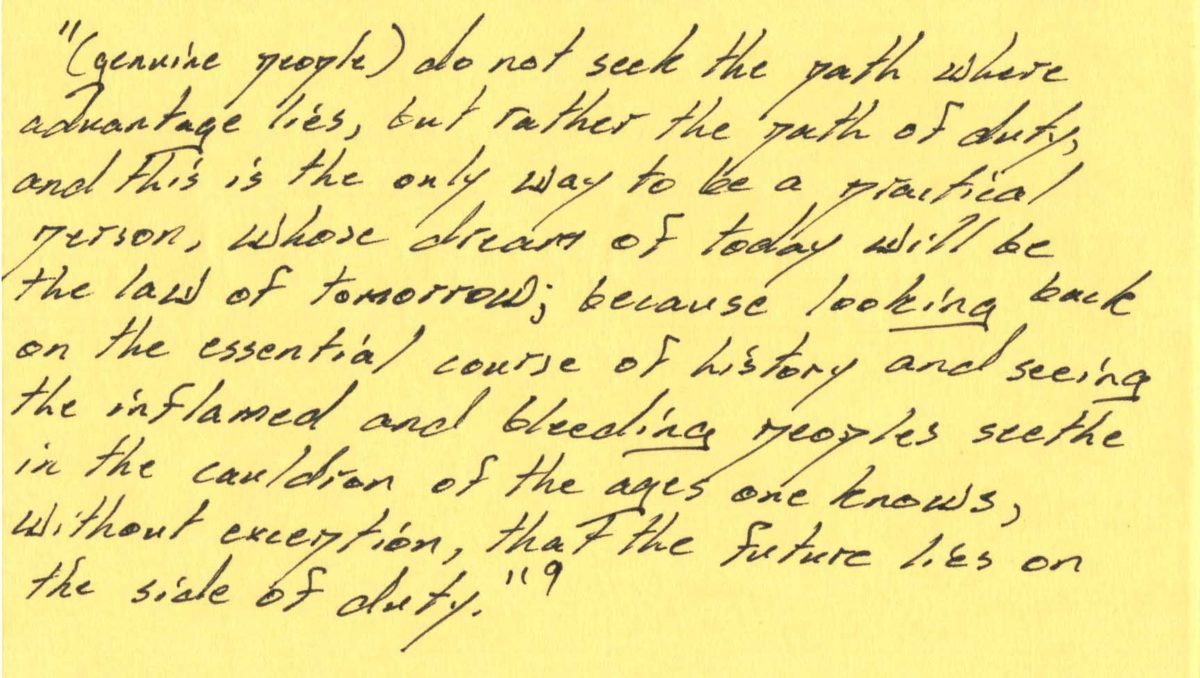 "(genuine people) do not seek the path where
advantage lies, but rather the path of duty,
and this is the only way to be a practical
person, whose dream of today will be
the law of tomorrow; because looking back
on the essential course of history and seeing
the inflamed and bleeding peoples seethe
in the cauldron of the ages one knows,
without exception, that the future lies on
the side of duty."9